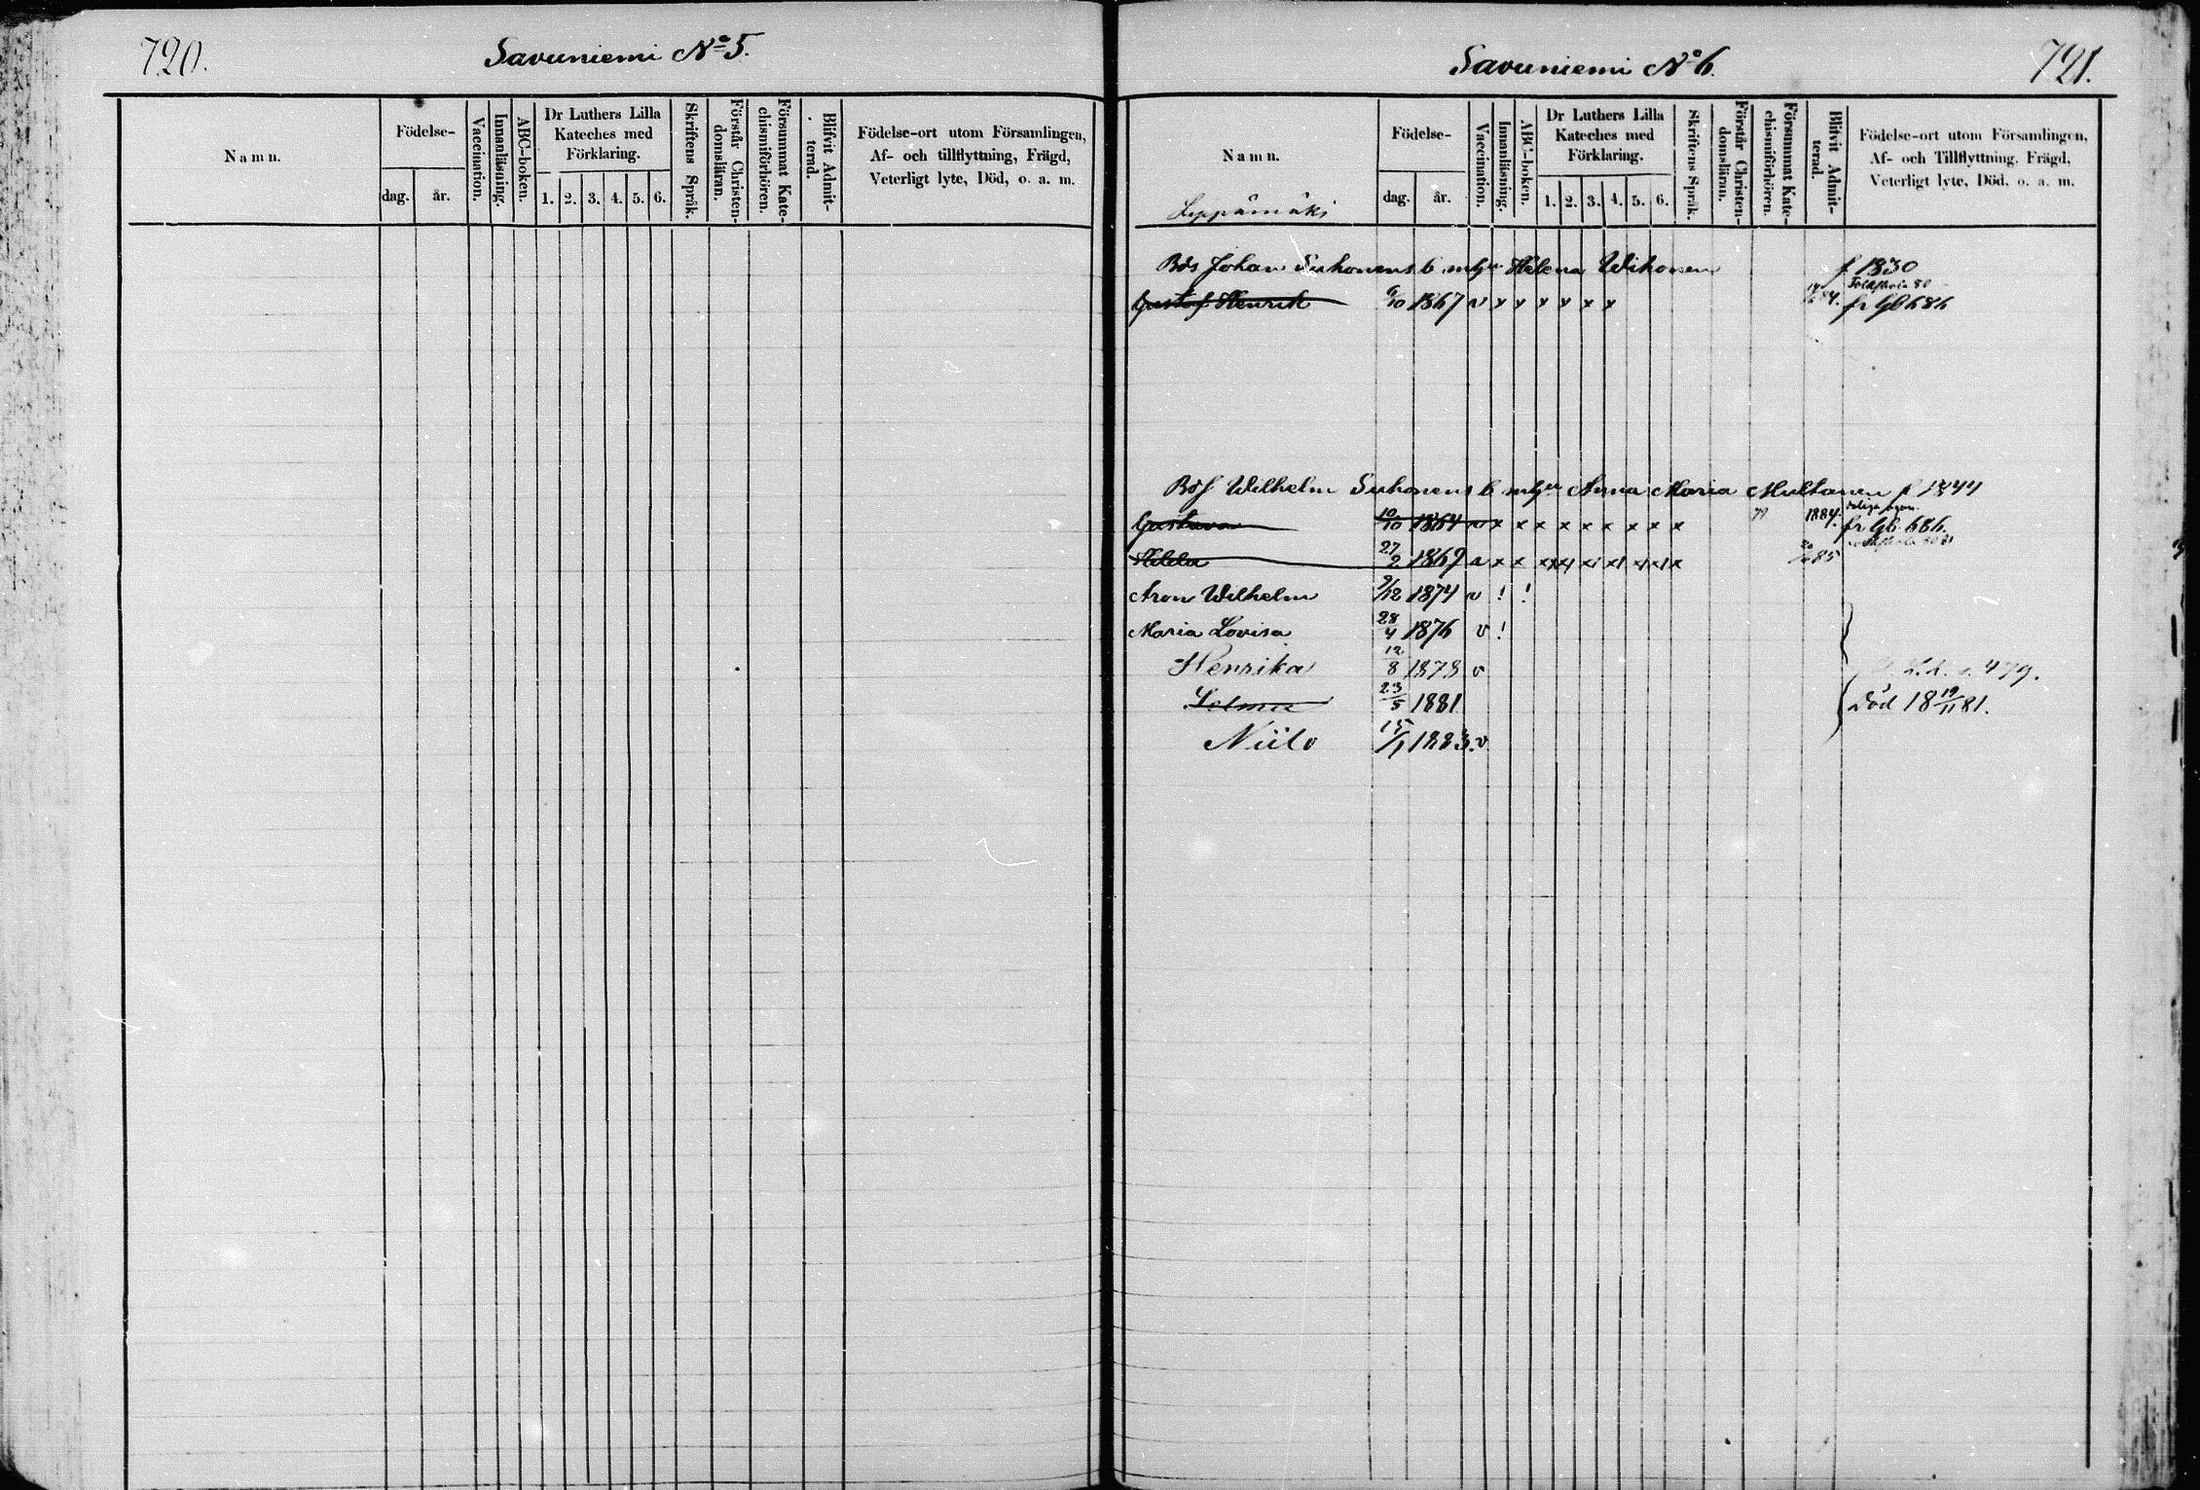 720.
Savuniemi No 5.
Namn.
Födelse-
dag.
år.
Vaccination.
Innanläsning.
ABC-boken.
Dr Luthers Lilla
Kateches med
Förklaring.
1. 2. 3. 4. 5. 6.
Skriftens Språk.
Förstår Christen-
domsläran.
Försummat Kate-
chismiförhören.
Blifvit Admit-
terad.
Födelse-ort utom Församlingen,
Af- och tillflyttning, Frägd,
Veterligt lyte, Död, o. a. m.
Savuniemi No 6.
721.
Namn.
Leppämäki
Födelse-
dag.
år.
Vaccination.
Innanläsning.
ABC-boken.
Dr Luthers Lilla
Kateches med
Förklaring.
1. 2. 3. 4. 5. 6.
Skriftens Språk.
Förstår Christen-
domsläran.
Försummat Kate-
chismiförhören.
Blifvit Admit-
terad.
Födelse-ort utom Församlingen,
Af- och Tillflyttning, Frägd,
Veterligt lyte, Död, o. a. m.
Johan Suhonens b m Helena Wihonen f 1830
Gustaf Henrik 6/10 1867 v x x x x x x fr Gb 686
Wilhelm Suhonens b m Anna Maria Multanen f 1844
Gustava 10/10 1864 v x x x x x x x x 1884. fr Gb 686.
Hilda 27/2 1869 v x x x x x x x x x 85
Aron Wilhelm 9/12 1874 v ! !
Maria Lovisa 28/4 1876 v !
Henrika 12/8 1878 v 479.
Selma 23/5 1881 Död 18 19/11 81.
Niilo 15/1 1883. v